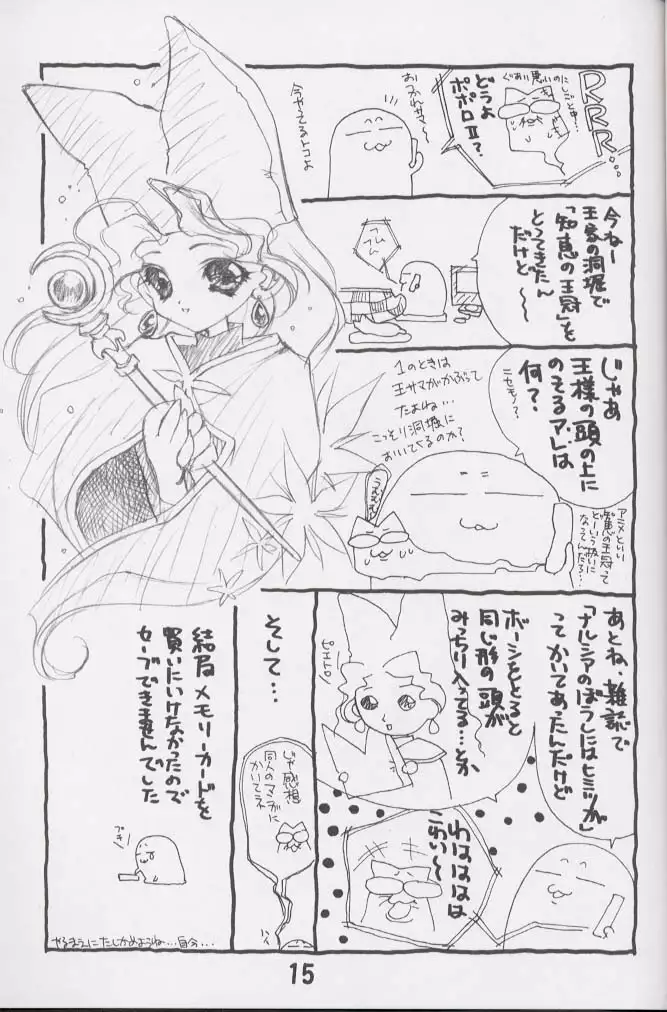 RRR…
どうよ
ポポロⅡ？
おつかれサマ〜
今やってるトコよ
今ねー
王家の洞堀で
「知恵の王冠」を
とってきたん
だけど〜〜
じゃあ
王様の頭の上に
のってるアレは
何？
ニセモノ？
1のときは
王サマがかぶって
たよね…
こっそり洞堀に
おいてくるのか？
うむむむ
アニメといい
知恵の王冠って
どーいう扱いに
なってんだろ…
あとね、雑誌で
「ナルシアのぼうしにはヒミツが」
ってかいてあったんだけど
ボーシをとると
同じ形の頭が
みっちり入ってる…とか
ピエトロ♡
わはははは
こわい〜
そして…
じゃ感想
同人のマンガに
かいてネ
ハイ
結局メモリーカードを
買いにいけなかったので
セーブできませんでした
やるまえにたしかめようね…自分…
15